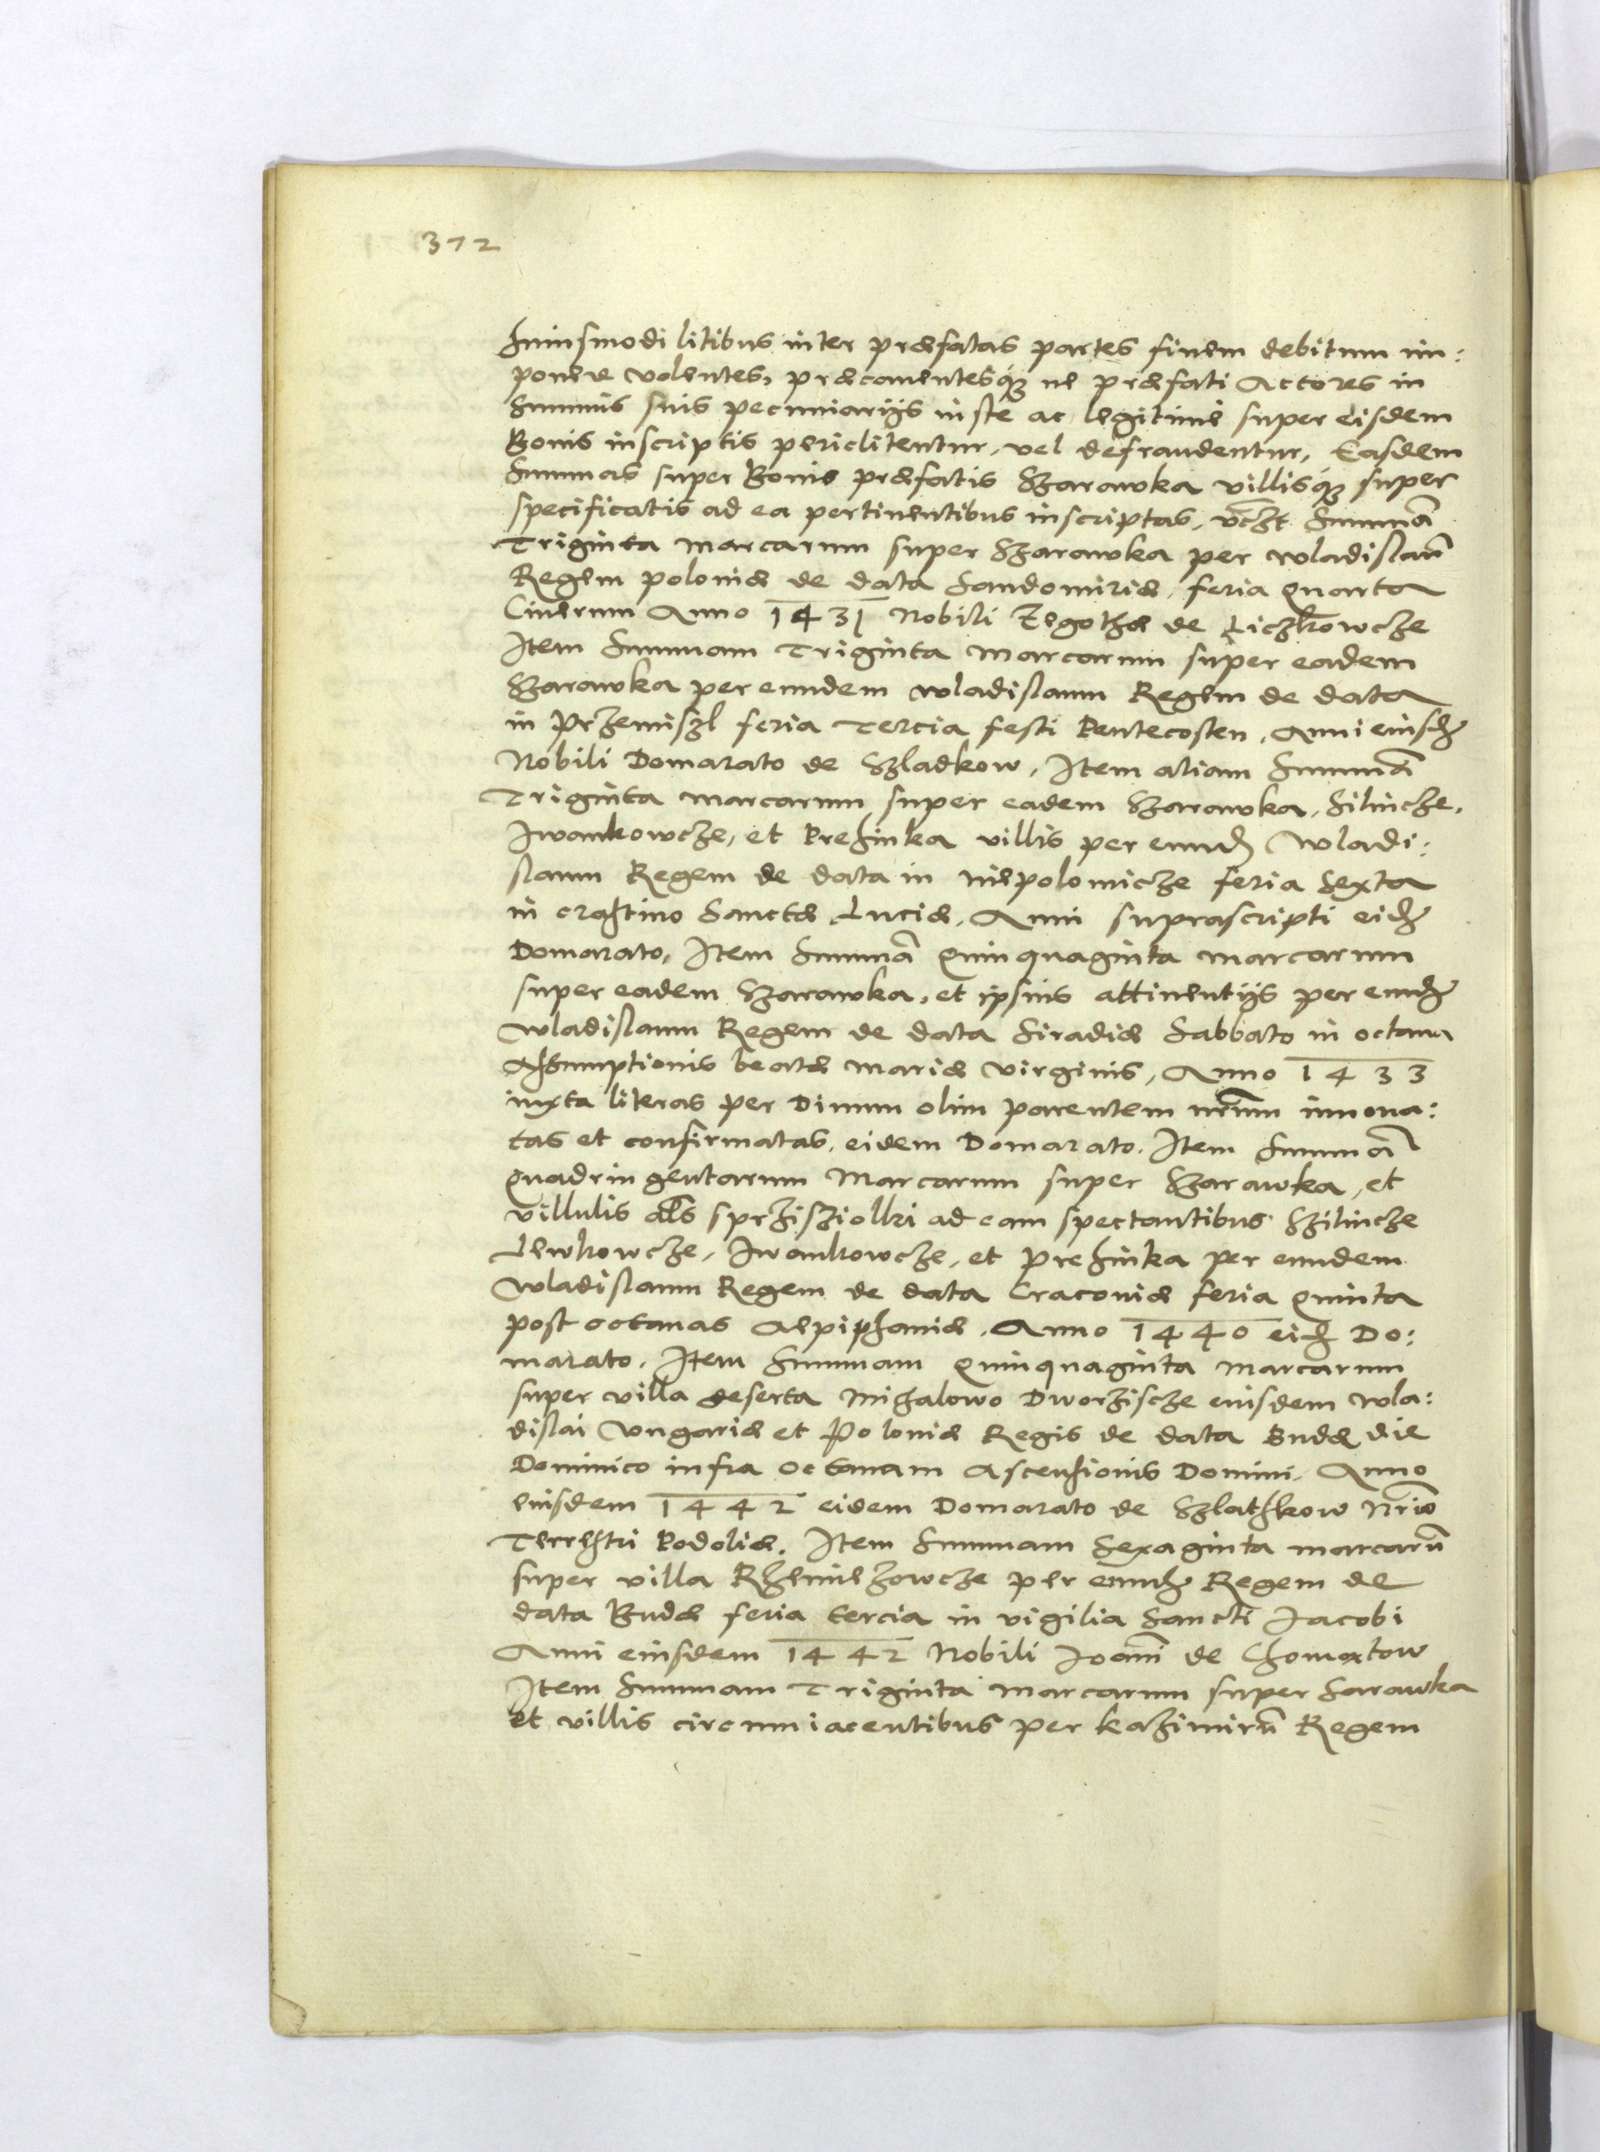 372
huiusmodi litibus inter præfatas partes finem debitum im:
ponere volentes, præcauentesq́ꝫ ne præfati Actores in
Summis suis pecuniarijs iuste ac legitime super eisdem
Bonis inscriptis periclitentur, vel defraudentur, Easdem
Summas super Bonis præfatis Szarawka villisq́ꝫ super
specificatis ad ea pertinentibus inscriptas, vcꝫt Summā
Triginta marcarum super Szarawka per wladislaū
Regem poloniæ de data Sandomiriæ, feria quarta
Cinerum Anno 1431 Nobili Elgothæ de Liczkowcze
Item Summam Triginta marcarum super eadem
Szarawka per eundem wladislaum Regem de data
in Przemiszl feria Tercia festi Pentecosten, Anni eiusdꝫ
Nobili Domarato de Szladkow, Item aliam Summā
Triginta marcarum super eadem Szarawka, Silincze,
Iwankowcze, et Prehinka villis per eundꝫ Wladi:
slaum Regem de data in niepolomicze feria Sexta
in crastino Sanctæ Luciæ, Anni suprascripti eidꝫ
Domarato, Item Summā Quinquaginta marcarum
super eadem Szarawka, et ipsius attinentijs per eundꝫ
wladislaum Regem de data Siradiæ Sabbato in octaua
Assumptionis beatæ mariæ virginis, Anno 1433
iuxta literas per Diuum olim parentem nr̄um innoua:
tas et confirmatas, eidem Domarato. Item Summā
quadringentarum Marcarum super Szarawka, et
villulis als sprzisziolki ad eam spectantibus Szilincze
Lewkowcze, Iwankowcze, et Prehinka per eundem
wladislaum Regem de data Cracouiæ feria quinta
post octauas Aepiphaniæ, Anno 1440 eidꝫ Do:
marato. Item Summam Quinquaginta marcarum
super villa deserta Mihalowo Dworziscze eiusdem wla:
dislai Vngariæ et Poloniæ Regis de data Budæ die
Dominico infra octauam Ascensionis Domini, Anno
eiusdem 1442 eidem Domarato de Szlathkow Nr̄io
Terrestri Podoliæ. Item Summam Sexaginta marcarū
super villa Rzemiezowcze per eundꝫ Regem de
data Budæ feria tercia in vigilia Sancti Iacobi
Anni eiusdem 1442 Nobili Ioāni de Chomxtow
Item Summam Triginta marcarum super Sarawka
et villis circumiacentibus per kazimirū Regem